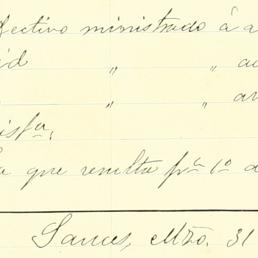 fectivo ministrado á a
id " a
" a
ista.
a que resulta pa 1o d
Sauces, Mzo. 31